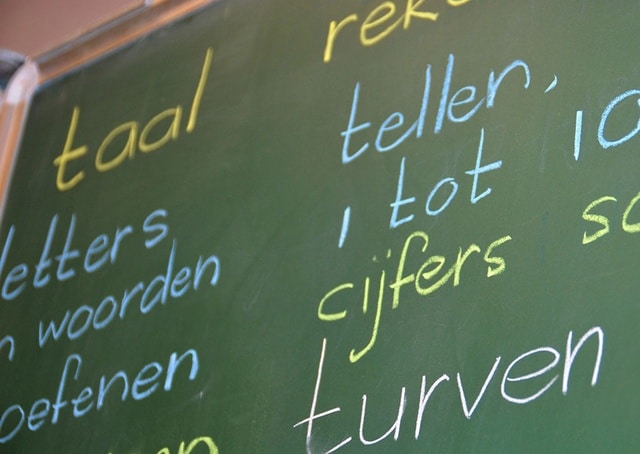 taal
letters
woorden
oefenen
reke
tellen,
1 tot 10
cijfers
turven